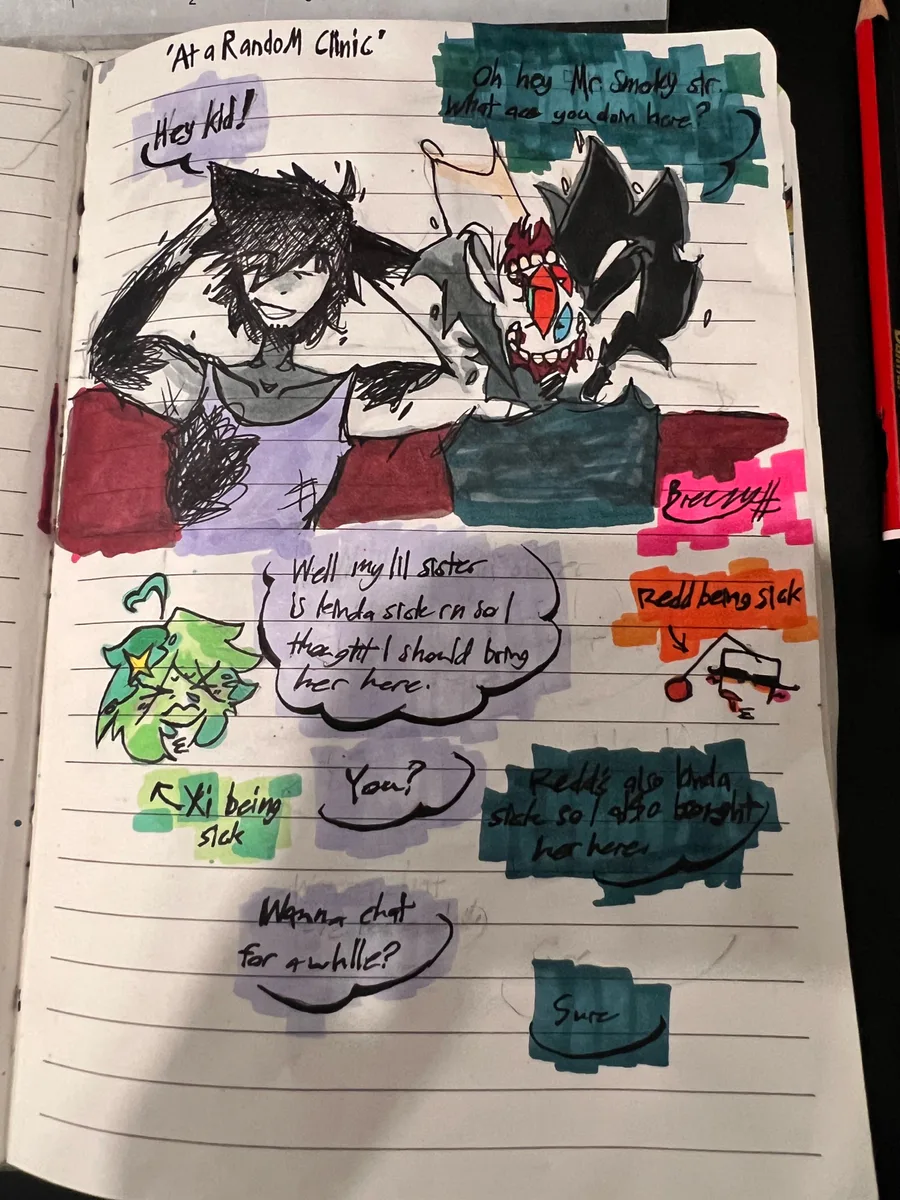 'At a Random Clinic'
Hey kid!
Oh hey Mr. Smoky sir.
What are you doin here?
Breezy#
Well my lil sister
is kinda sick rn so I
thought I should bring
her here.
Redd being sick
Xi being
sick
You?
Redd's also kinda
sick so I also brought
her here.
Wanna chat
for a while?
Sure